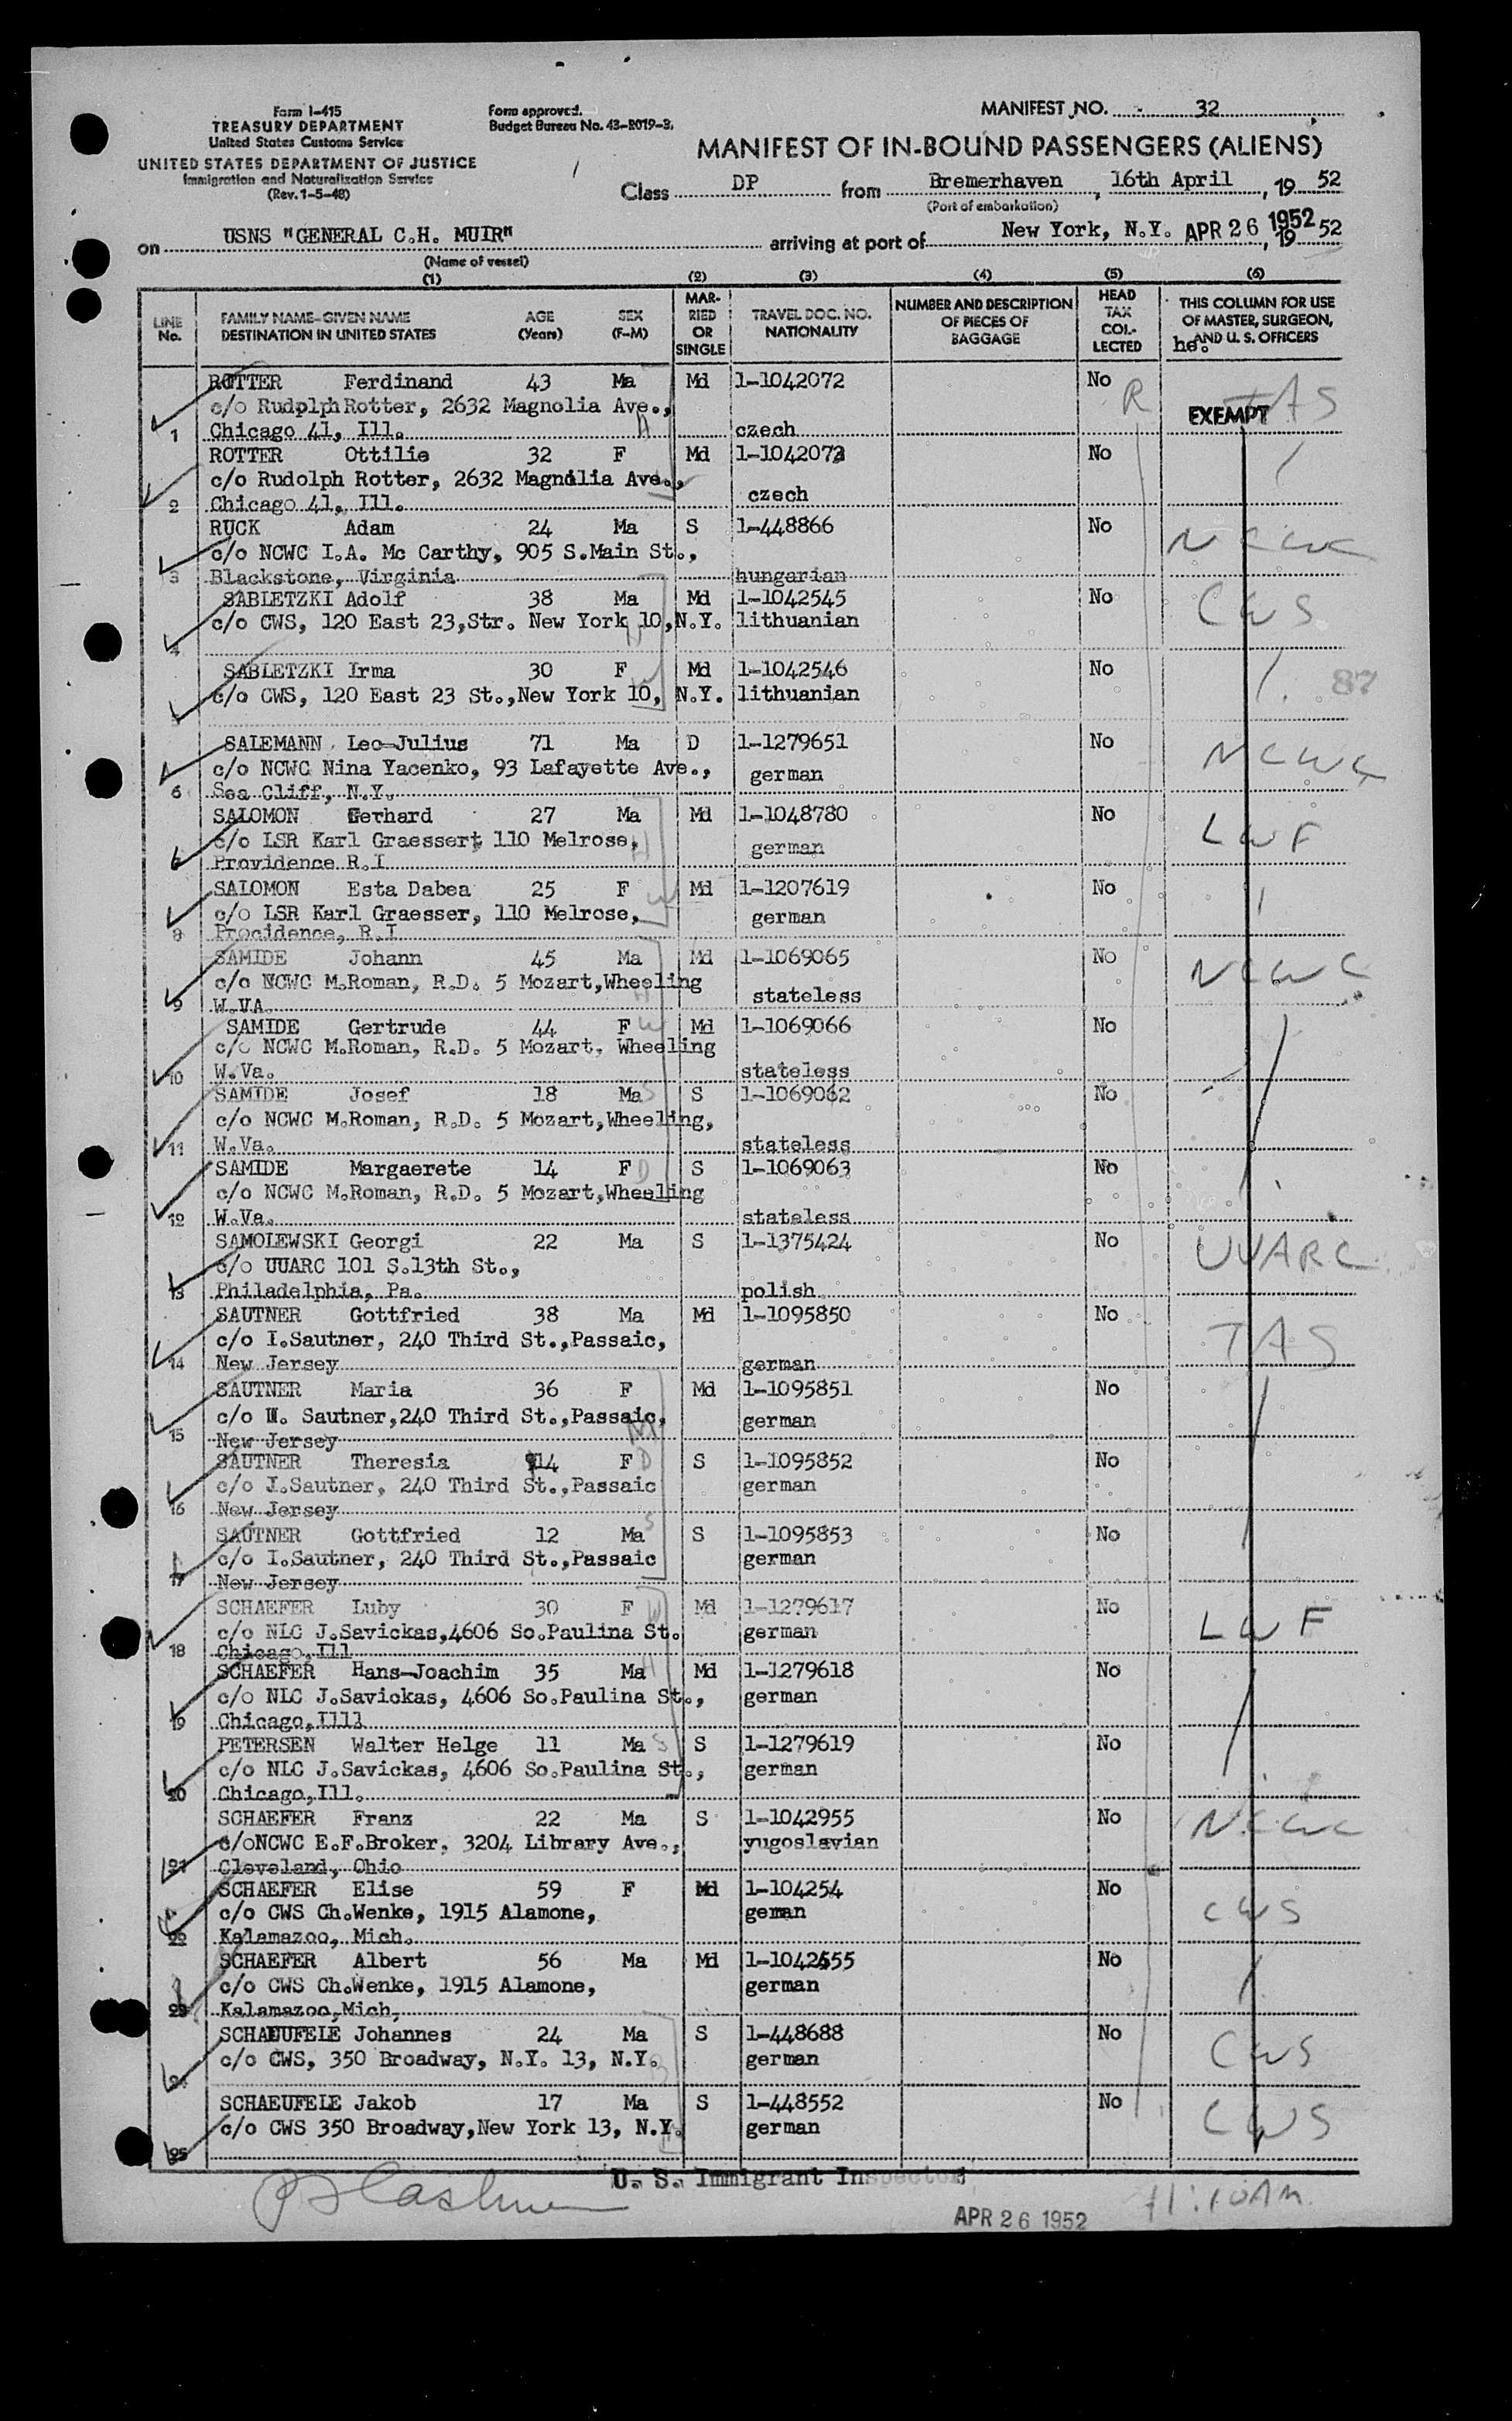 Form I-415
TREASURY DEPARTMENT
United States Customs Service
UNITED STATES DEPARTMENT OF JUSTICE
Immigration and Naturalization Service
(Rev. 1-5-48)
Form approved.
Budget Bureau No. 43-R019-3.
MANIFEST NO. 32
MANIFEST OF IN-BOUND PASSENGERS (ALIENS)
Class DP from Bremerhaven, 16th April, 19 52
(Port of embarkation)
on USNS "GENERAL C.H. MUIR" arriving at port of New York, N.Y. APR 26 1952, 19 52
(Name of vessel)
(1) (2) (3) (4) (5) (6)
LINE No. FAMILY NAME-GIVEN NAME DESTINATION IN UNITED STATES AGE (Years) SEX (F-M) MARRIED OR SINGLE TRAVEL DOC. NO. NATIONALITY NUMBER AND DESCRIPTION OF PIECES OF BAGGAGE HEAD TAX COLLECTED THIS COLUMN FOR USE OF MASTER, SURGEON, AND U. S. OFFICERS
ROTTER Ferdinand 43 Ma Md 1-1042072 No R TAS
c/o Rudplph Rotter, 2632 Magnolia Ave., EXEMPT
1 Chicago 41, Ill. H czech
ROTTER Ottilie 32 F Md 1-1042073 No
c/o Rudolph Rotter, 2632 Magnilia Ave., W
2 Chicago 41, Ill. czech
RUCK Adam 24 Ma S 1-448866 No NCWC
c/o NCWC I.A. Mc Carthy, 905 S.Main St.,
3 Blackstone, Virginia hungarian
SABLETZKI Adolf 38 Ma Md 1-1042545 No CWS
c/o CWS, 120 East 23,Str. New York 10,N.Y. lithuanian
4
SABLETZKI Irma 30 F Md 1-1042546 No 87
c/o CWS, 120 East 23 St.,New York 10, N.Y. lithuanian
5
SALEMANN Leo-Julius 71 Ma D 1-1279651 No NCWC
c/o NCWC Nina Yacenko, 93 Lafayette Ave., german
6 Sea Cliff, N.Y.
SALOMON Gerhard 27 Ma Md 1-1048780 No LWF
c/o LSR Karl Graessert 110 Melrose, H german
Providence R.I
SALOMON Esta Dabea 25 F Md 1-1207619 No
c/o LSR Karl Graesser, 110 Melrose, W german
8 Procidence, R.I
SAMIDE Johann 45 Ma Md 1-1069065 No NCWC
c/o NCWC M.Roman, R.D. 5 Mozart,Wheeling stateless
9 W.VA.
SAMIDE Gertrude 44 F W Md 1-1069066 No
c/o NCWC M.Roman, R.D. 5 Mozart, Wheeling
10 W.Va. stateless
SAMIDE Josef 18 Ma S S 1-1069062 No
c/o NCWC M.Roman, R.D. 5 Mozart,Wheeling,
11 W.Va. stateless
SAMIDE Margaerete 14 F D S 1-1069063 No
c/o NCWC M.Roman, R.D. 5 Mozart,Wheeling
12 W.Va. stateless
SAMOLEWSKI Georgi 22 Ma S 1-1375424 No UUARC
c/o UUARC 101 S.13th St.,
13 Philadelphia, Pa. polish
SAUTNER Gottfried 38 Ma Md 1-1095850 No TAS
c/o I.Sautner, 240 Third St.,Passaic,
14 New Jersey german
SAUTNER Maria 36 F Md 1-1095851 No
c/o W. Sautner,240 Third St.,Passaic, german
15 New Jersey M
SAUTNER Theresia 14 F D S 1-1095852 No
c/o I.Sautner, 240 Third St.,Passaic german
16 New Jersey
SAUTNER Gottfried 12 Ma S S 1-1095853 No
c/o I.Sautner, 240 Third St.,Passaic german
17 New Jersey
SCHAEFER Luby 30 F W Md 1-1279617 No LWF
c/o NLC J.Savickas,4606 So.Paulina St. german
18 Chicago,Ill
SCHAEFER Hans-Joachim 35 Ma H Md 1-1279618 No
c/o NLC J.Savickas, 4606 So.Paulina St., german
19 Chicago,Illl
PETERSEN Walter Helge 11 Ma S S 1-1279619 No
c/o NLC J.Savickas, 4606 So.Paulina St., german
20 Chicago,Ill.
SCHAEFER Franz 22 Ma S 1-1042955 No NCWC
c/oNCWC E.F.Broker, 3204 Library Ave., yugoslavian
21 Cleveland, Ohio
SCHAEFER Elise 59 F Md 1-104254 No
c/o CWS Ch.Wenke, 1915 Alamone, geman CWS
22 Kalamazoo, Mich.
SCHAEFER Albert 56 Ma Md 1-1042555 No
c/o CWS Ch.Wenke, 1915 Alamone, german
23 Kalamazoo,Mich,
SCHAEUFELE Johannes 24 Ma S 1-448688 No
c/o CWS, 350 Broadway, N.Y. 13, N.Y. B german CWS
24
SCHAEUFELE Jakob 17 Ma S 1-448552 No
c/o CWS 350 Broadway,New York 13, N.Y. german CWS
25
U. S. Immigrant Inspector
APR 26 1952 11:10AM